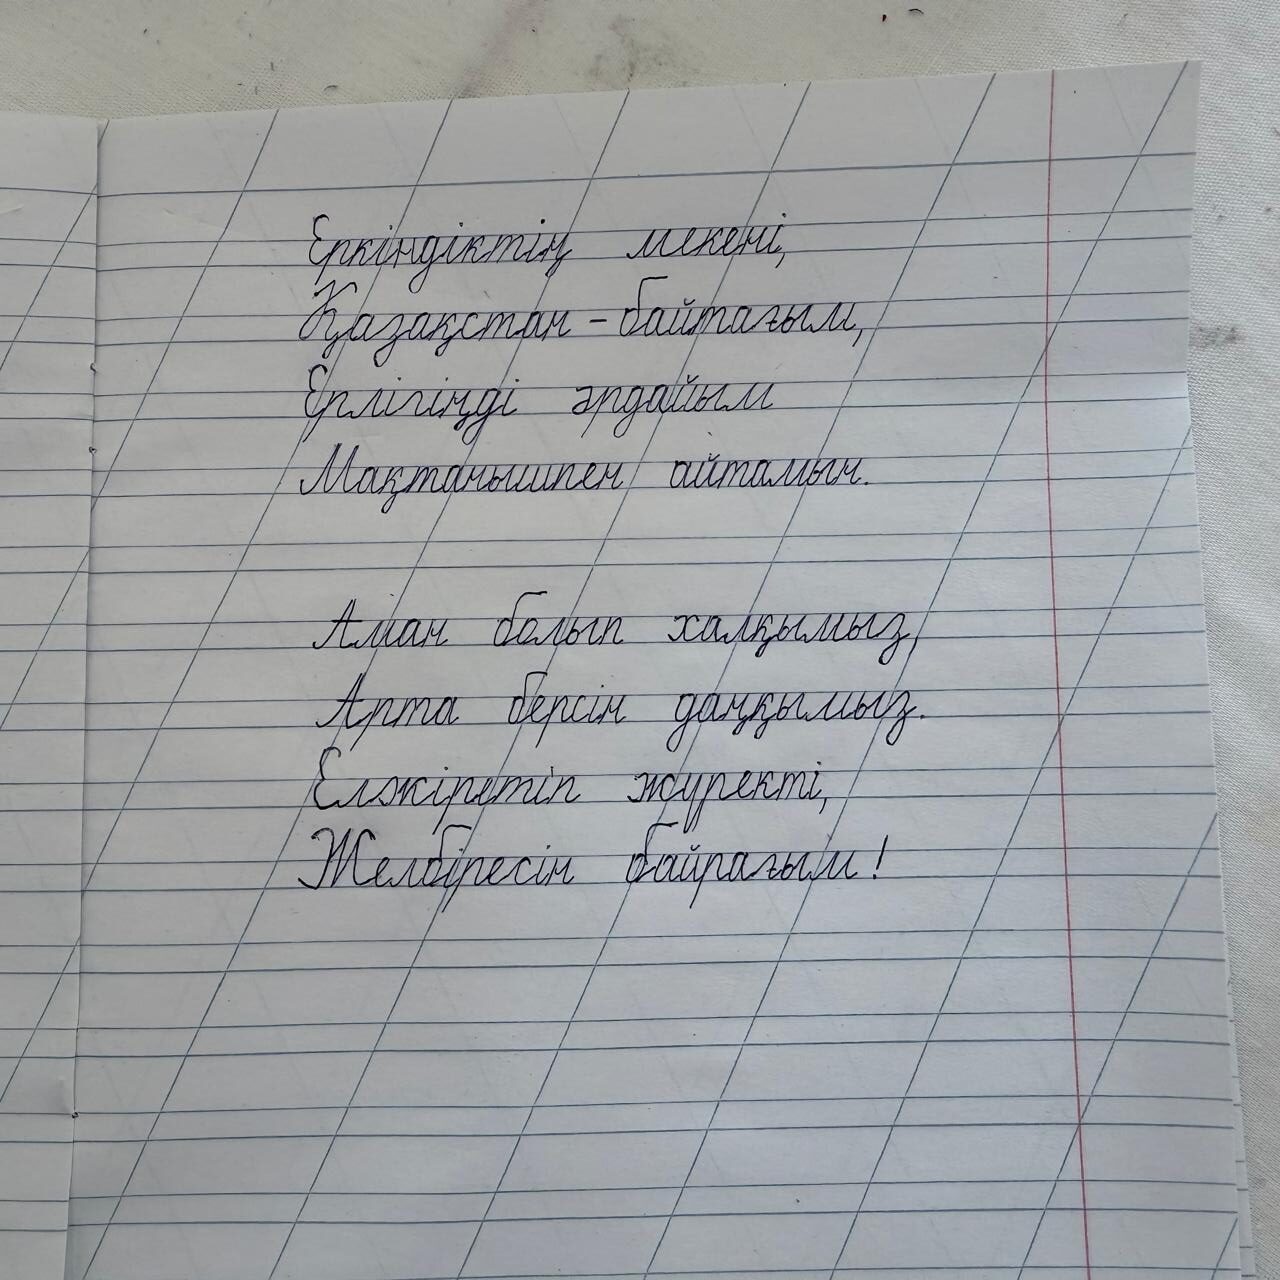 Еркіндіктің мекені,
Қазақстан - байтағым,
Ерлігіңді әрдайым
Мақтанышпен айтамын.
Аман болып халқымыз,
Арта берсін даңқымыз.
Елжіретіп жүректі,
Желбіресін байрағым!